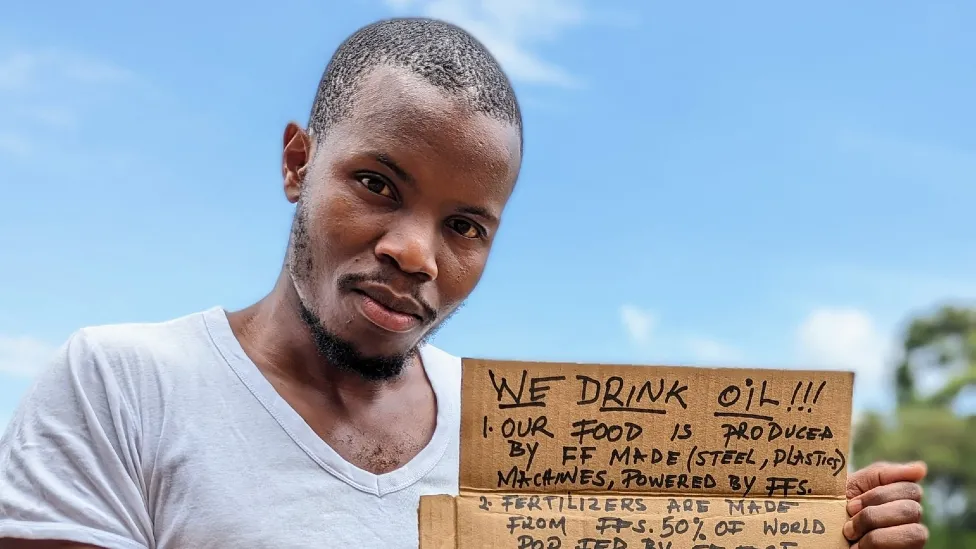 WE DRINK OIL!!!
1. OUR FOOD IS PRODUCED
BY FF MADE (STEEL, PLASTICS)
MACHINES, POWERED BY FFS.
2. FERTILIZERS ARE MADE
FROM FFS. 50% OF WORLD
POP FED BY FF